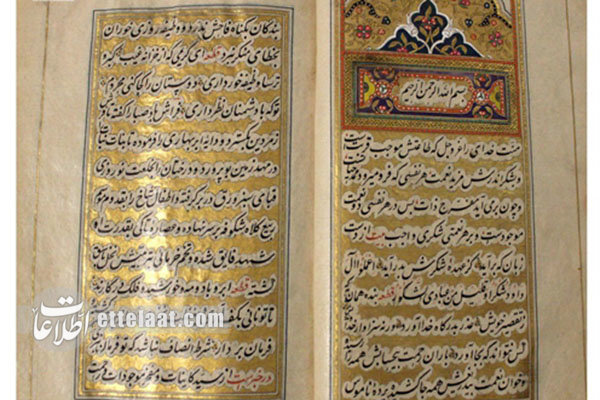 بسم الله الرحمن الرحیم
منت خدای را عز و جل که طاعتش موجب قربت
و بشکر اندرش مزید نعمت هر نفسی که فرو میرود
و چون بر می آید مفرح ذات پس در هر نفسی دو نعمت
موجودست و بر هر نعمتی شکری واجب بیت از دست و
زبان که برآید کز عهده شکرش بدر آید اعملوا آل
داود شکرا و قلیل من عبادی الشکور قطعه بنده همان که
ز تقصیر خویش عذر بدرگاه خدا آورد ورنه سزاوار
کس نتواند که بجا آورد باران رحمت بیحسابش همه را رسیده
و خوان نعمت بیدریغش همه جا کشیده پرده ناموس
بندگان بگناه فاحش ندرد و وظیفه روزی خوران
بخطای منکر نبرد قطعه ای کریمی که از خزانه غیب گبر و
ترسا وظیفه خور داری دوستان را کجا کنی محروم
تو که با دشمنان نظر داری فراش باد صبا را گفته تا فرش
زمردین بگسترد و دایه ابر بهاری را فرموده تا بنات نبات
در مهد زمین بپرورد و درختان را بخلعت نوروزی
قبای سبز ورق در بر گرفته و اطفال شاخ را بقدوم موسم
ربیع کلاه شکوفه بر سر نهاده و عصاره تاکی بقدرت او
شهد فایق شده و تخم خرمائی بتربیتش نخل باسق
گشته قطعه ابر و باد و مه و خورشید و فلک در کارند
تا تو نانی بکف
فرمان بردار شرط انصاف نباشد که تو فرمان نبری
در خبرست از سرور کاینات و مفخر موجودات و رحمت
اطلاعات
ettelaat.com